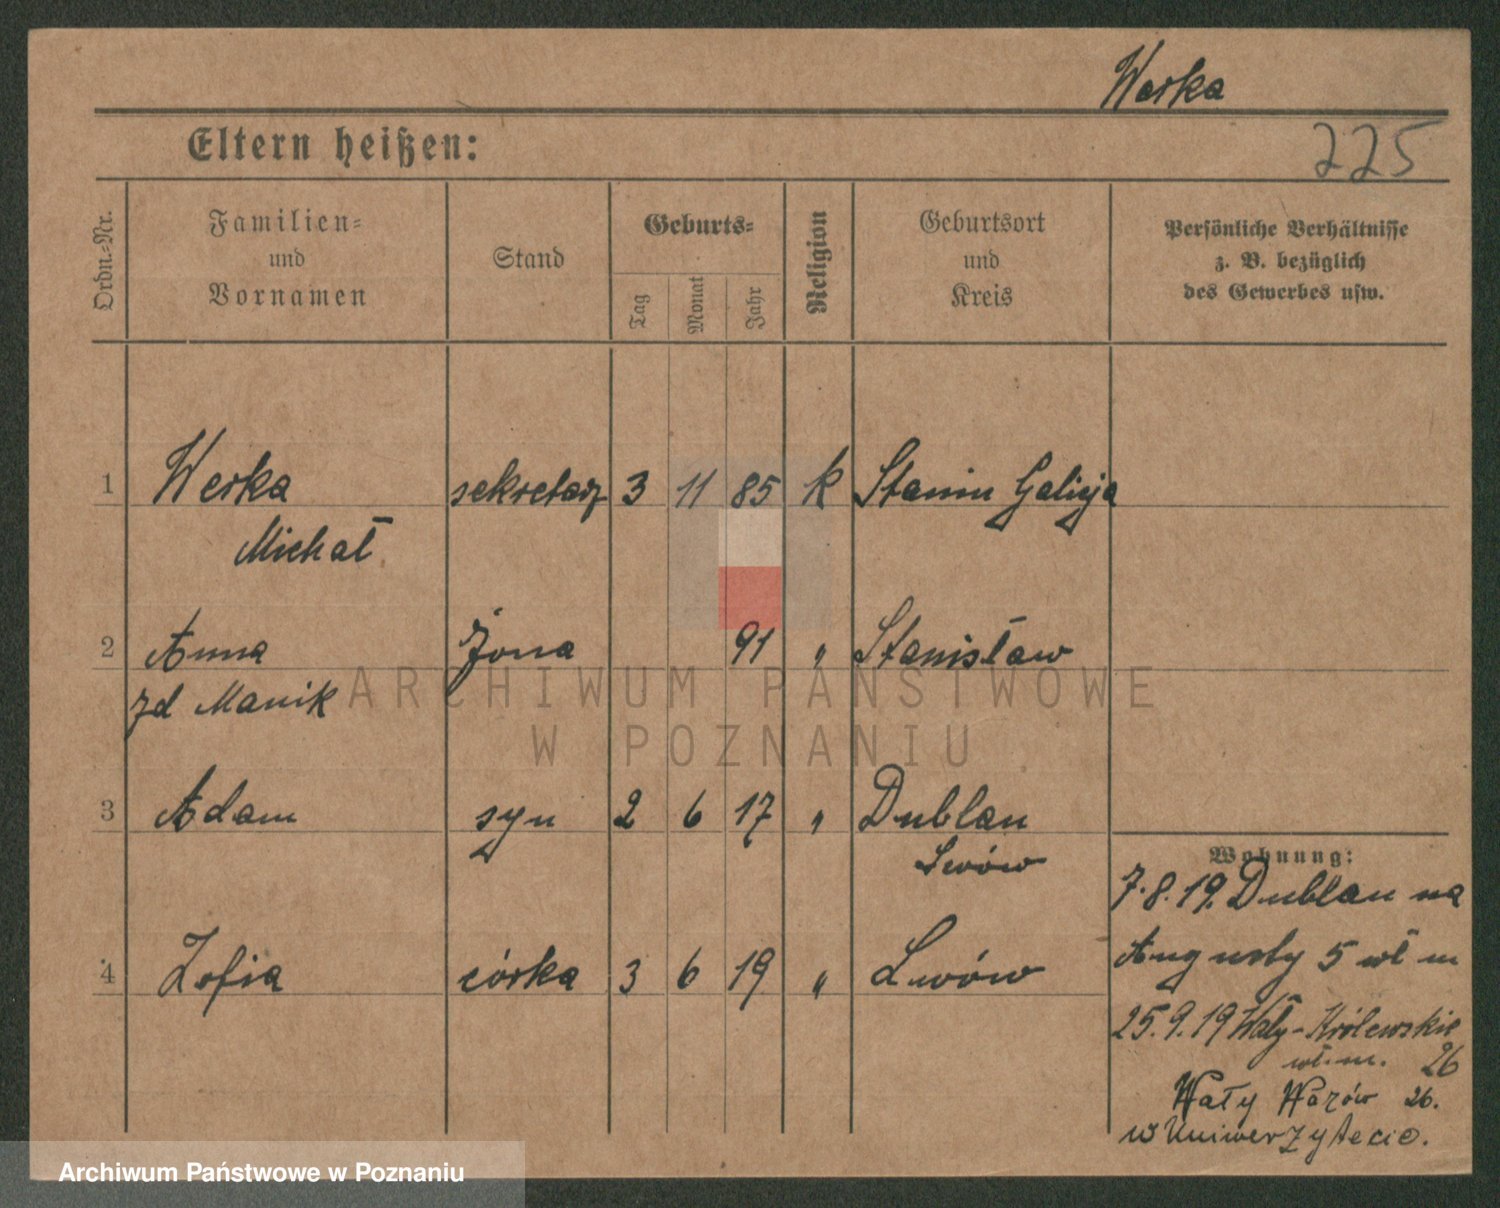 Werka
Eltern heißen:
225
Ordn.-Nr.
Familien-
und
Vornamen
Stand
Geburts-
Tag
Monat
Jahr
Religion
Geburtsort
und
Kreis
Persönliche Verhältnisse
z. B. bezüglich
des Gewerbes usw.
1 Werka sekretarz 3 11 85 k Stanin Galicja
Michał
2 Anna żona 91 " Stanisław
zd Manik
3 Adam syn 2 6 17 " Dublan
Lwów
4 Zofia córka 3 6 19 " Lwów
Wohnung:
7.8.19. Dublan na
Augusty 5 wł m
25.9.19 Wały-Królewskie
wł. m. 26
Wały Wazów 26.
w Uniwerzytecie.
ARCHIWUM PAŃSTWOWE
W POZNANIU
Archiwum Państwowe w Poznaniu